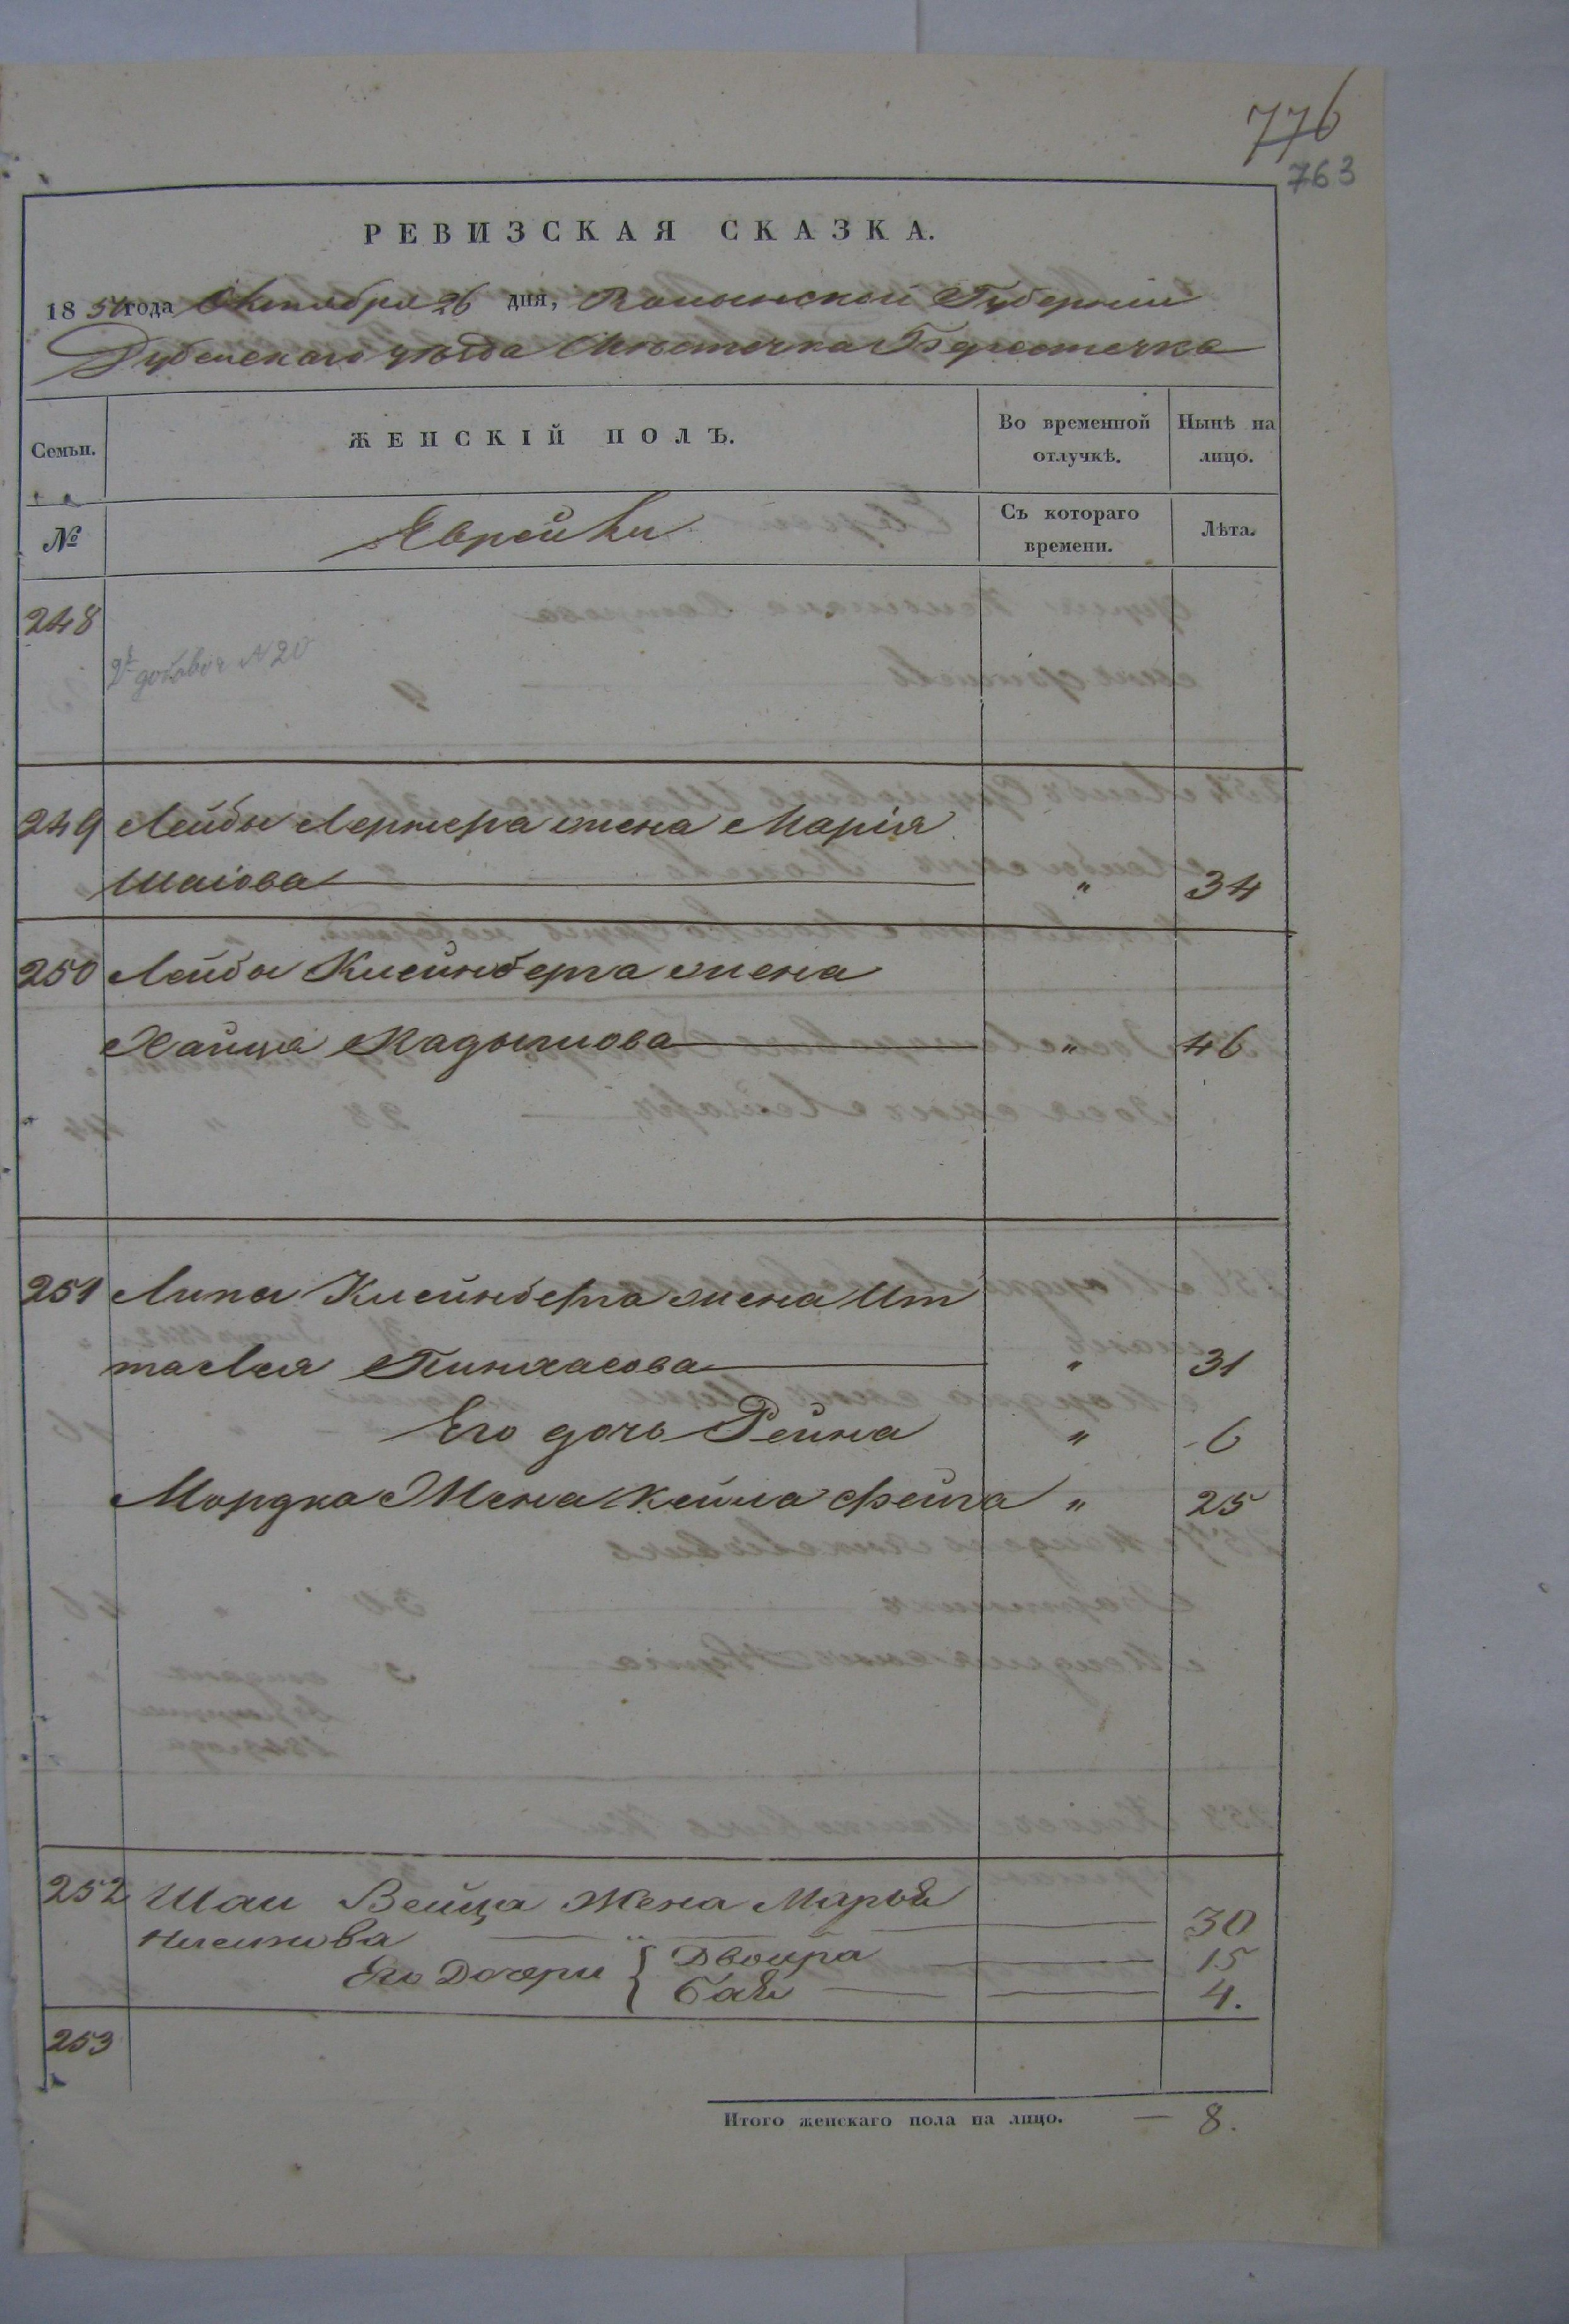 776
763
РЕВИЗСКАЯ СКАЗКА.
1850 года Октября 26 дня, Волынской Губернии
Дубенскаго уѣзда Мѣстечка Берестечка
Семьи.
ЖЕНСКІЙ ПОЛЪ.
Во временной отлучкѣ.
Нынѣ на лицо.
№
Еврейки
Съ котораго времени.
Лѣта.
248
249 Лейбы Лернера жена Марія
Шаіова " 34
250 Лейбы Клейнберга жена
Хайца Кадышова " 46
251 Липы Клейнберга жена Ит
та Лея Пинхасова " 31
Его дочь Рейна " 6
Мордка Жена Кейла Фейга " 25
252 Шаи Вейца Жена Марья
Нисинова 30
Его Дочери { Двойра 15
Бая 4.
253
Итого женскаго пола на лицо. — 8.